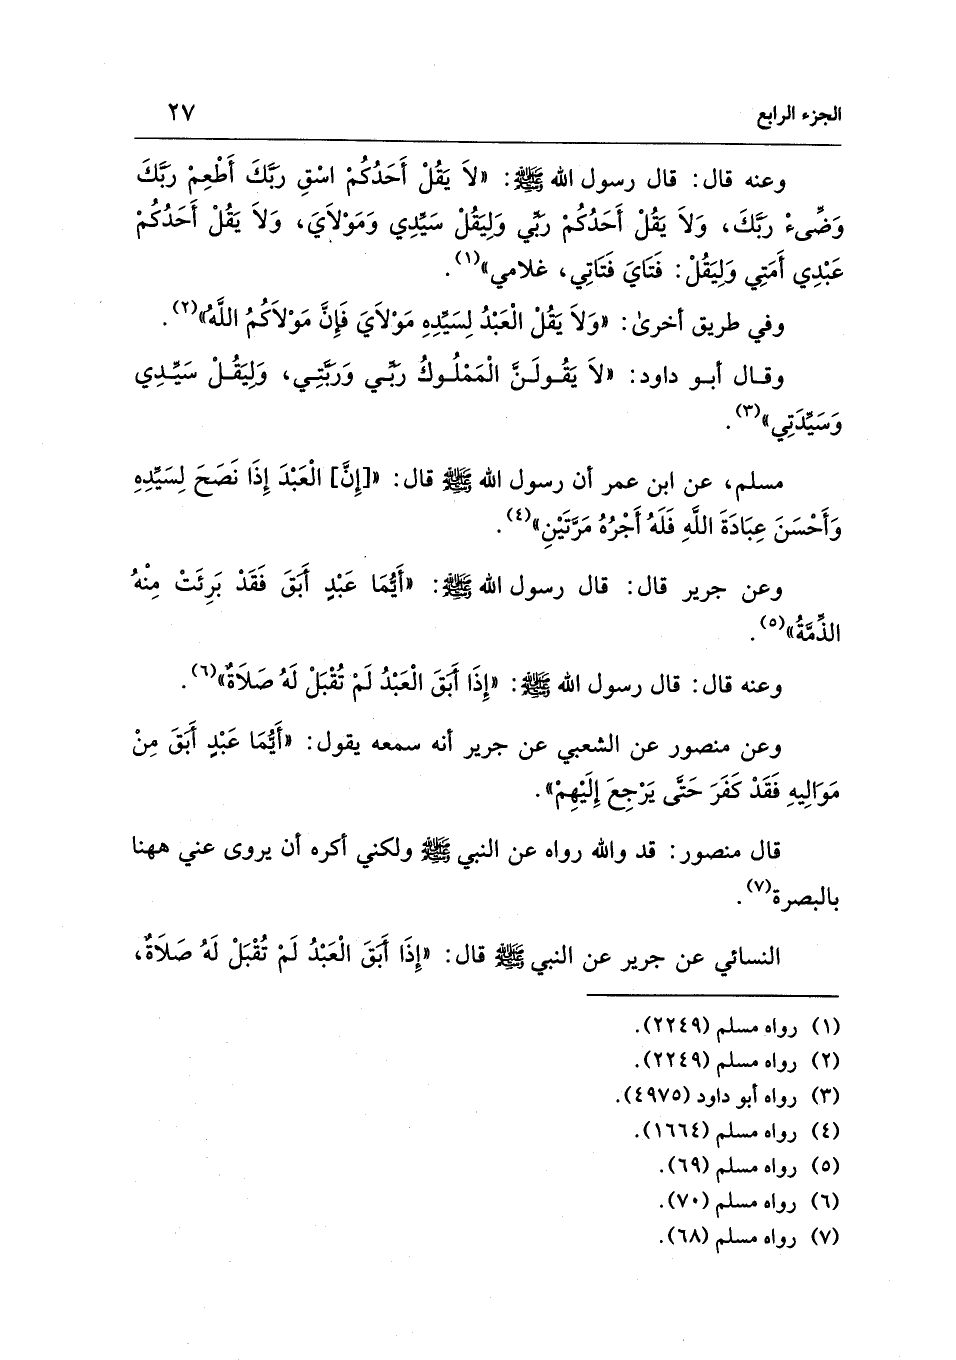 الجزء الرابع ٢٧
وعنه قال: قال رسول الله ﷺ: «لاَ يَقُلْ أَحَدُكُمْ اسْقِ رَبَّكَ أَطْعِمْ رَبَّكَ
وَضِّىءْ رَبَّكَ، وَلاَ يَقُلْ أَحَدُكُمْ رَبِّي وَلِيَقُلْ سَيِّدِي وَمَوْلاَيَ، وَلاَ يَقُلْ أَحَدُكُمْ
عَبْدِي أَمَتِي وَلِيَقُلْ: فَتَايَ فَتَاتِي، غلامي»(١).
وفي طريق أخرىٰ: «وَلاَ يَقُلْ الْعَبْدُ لِسَيِّدِهِ مَوْلاَيَ فَإِنَّ مَوْلاَكُمُ اللَّهُ»(٢).
وقال أبو داود: «لاَ يَقُولَنَّ الْمَمْلُوكُ رَبِّي وَرَبَّتِي، وَلِيَقُلْ سَيِّدِي
وَسَيِّدَتِي»(٣).
مسلم، عن ابن عمر أن رسول الله ﷺ قال: «[إِنَّ] الْعَبْدَ إِذَا نَصَحَ لِسَيِّدِهِ
وَأَحْسَنَ عِبَادَةَ اللَّهِ فَلَهُ أَجْرُهُ مَرَّتَيْنِ»(٤).
وعن جرير قال: قال رسول الله ﷺ: «أَيُّمَا عَبْدٍ أَبَقَ فَقَدْ بَرِئَتْ مِنْهُ
الذِّمَّةُ»(٥).
وعنه قال: قال رسول الله ﷺ: «إِذَا أَبَقَ الْعَبْدُ لَمْ تُقْبَلْ لَهُ صَلاَةٌ»(٦).
وعن منصور عن الشعبي عن جرير أنه سمعه يقول: «أَيُّمَا عَبْدٍ أَبَقَ مِنْ
مَوَالِيهِ فَقَدْ كَفَرَ حَتَّى يَرْجِعَ إِلَيْهِمْ».
قال منصور: قد والله رواه عن النبي ﷺ ولكني أكره أن يروى عني ههنا
بالبصرة(٧).
النسائي عن جرير عن النبي ﷺ قال: «إِذَا أَبَقَ الْعَبْدُ لَمْ تُقْبَلْ لَهُ صَلاَةٌ،
(١) رواه مسلم (٢٢٤٩).
(٢) رواه مسلم (٢٢٤٩).
(٣) رواه أبو داود (٤٩٧٥).
(٤) رواه مسلم (١٦٦٤).
(٥) رواه مسلم (٦٩).
(٦) رواه مسلم (٧٠).
(٧) رواه مسلم (٦٨).